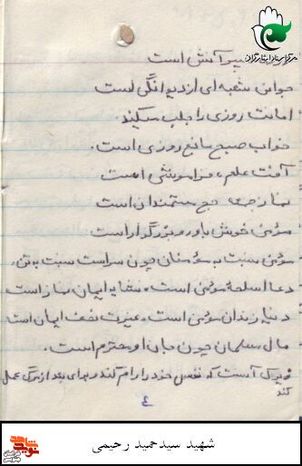 سپر آتش است
جوانی شعبه‌ای از دیوانگی است
امانت روزی را جلب میکند
خواب صبح مانع روزی است.
آفت علم، فراموشی است
نماز جمعه حج مستمندان است
مؤمن خوش باور و بزرگوار است
مؤمن نسبت به مؤمنان چون سر است نسبت به تن.
دعا اسلحهٔ مؤمن است. نشانه ایمان نماز است
دنیا زندان مؤمن است. نصف ایمان است
مال مسلمان چون جان او محترم است.
زیرک آنست که نفس خود را رام کند و برای بعد از مرگ عمل
کند
٤
شهید سیدحمید رحیمی